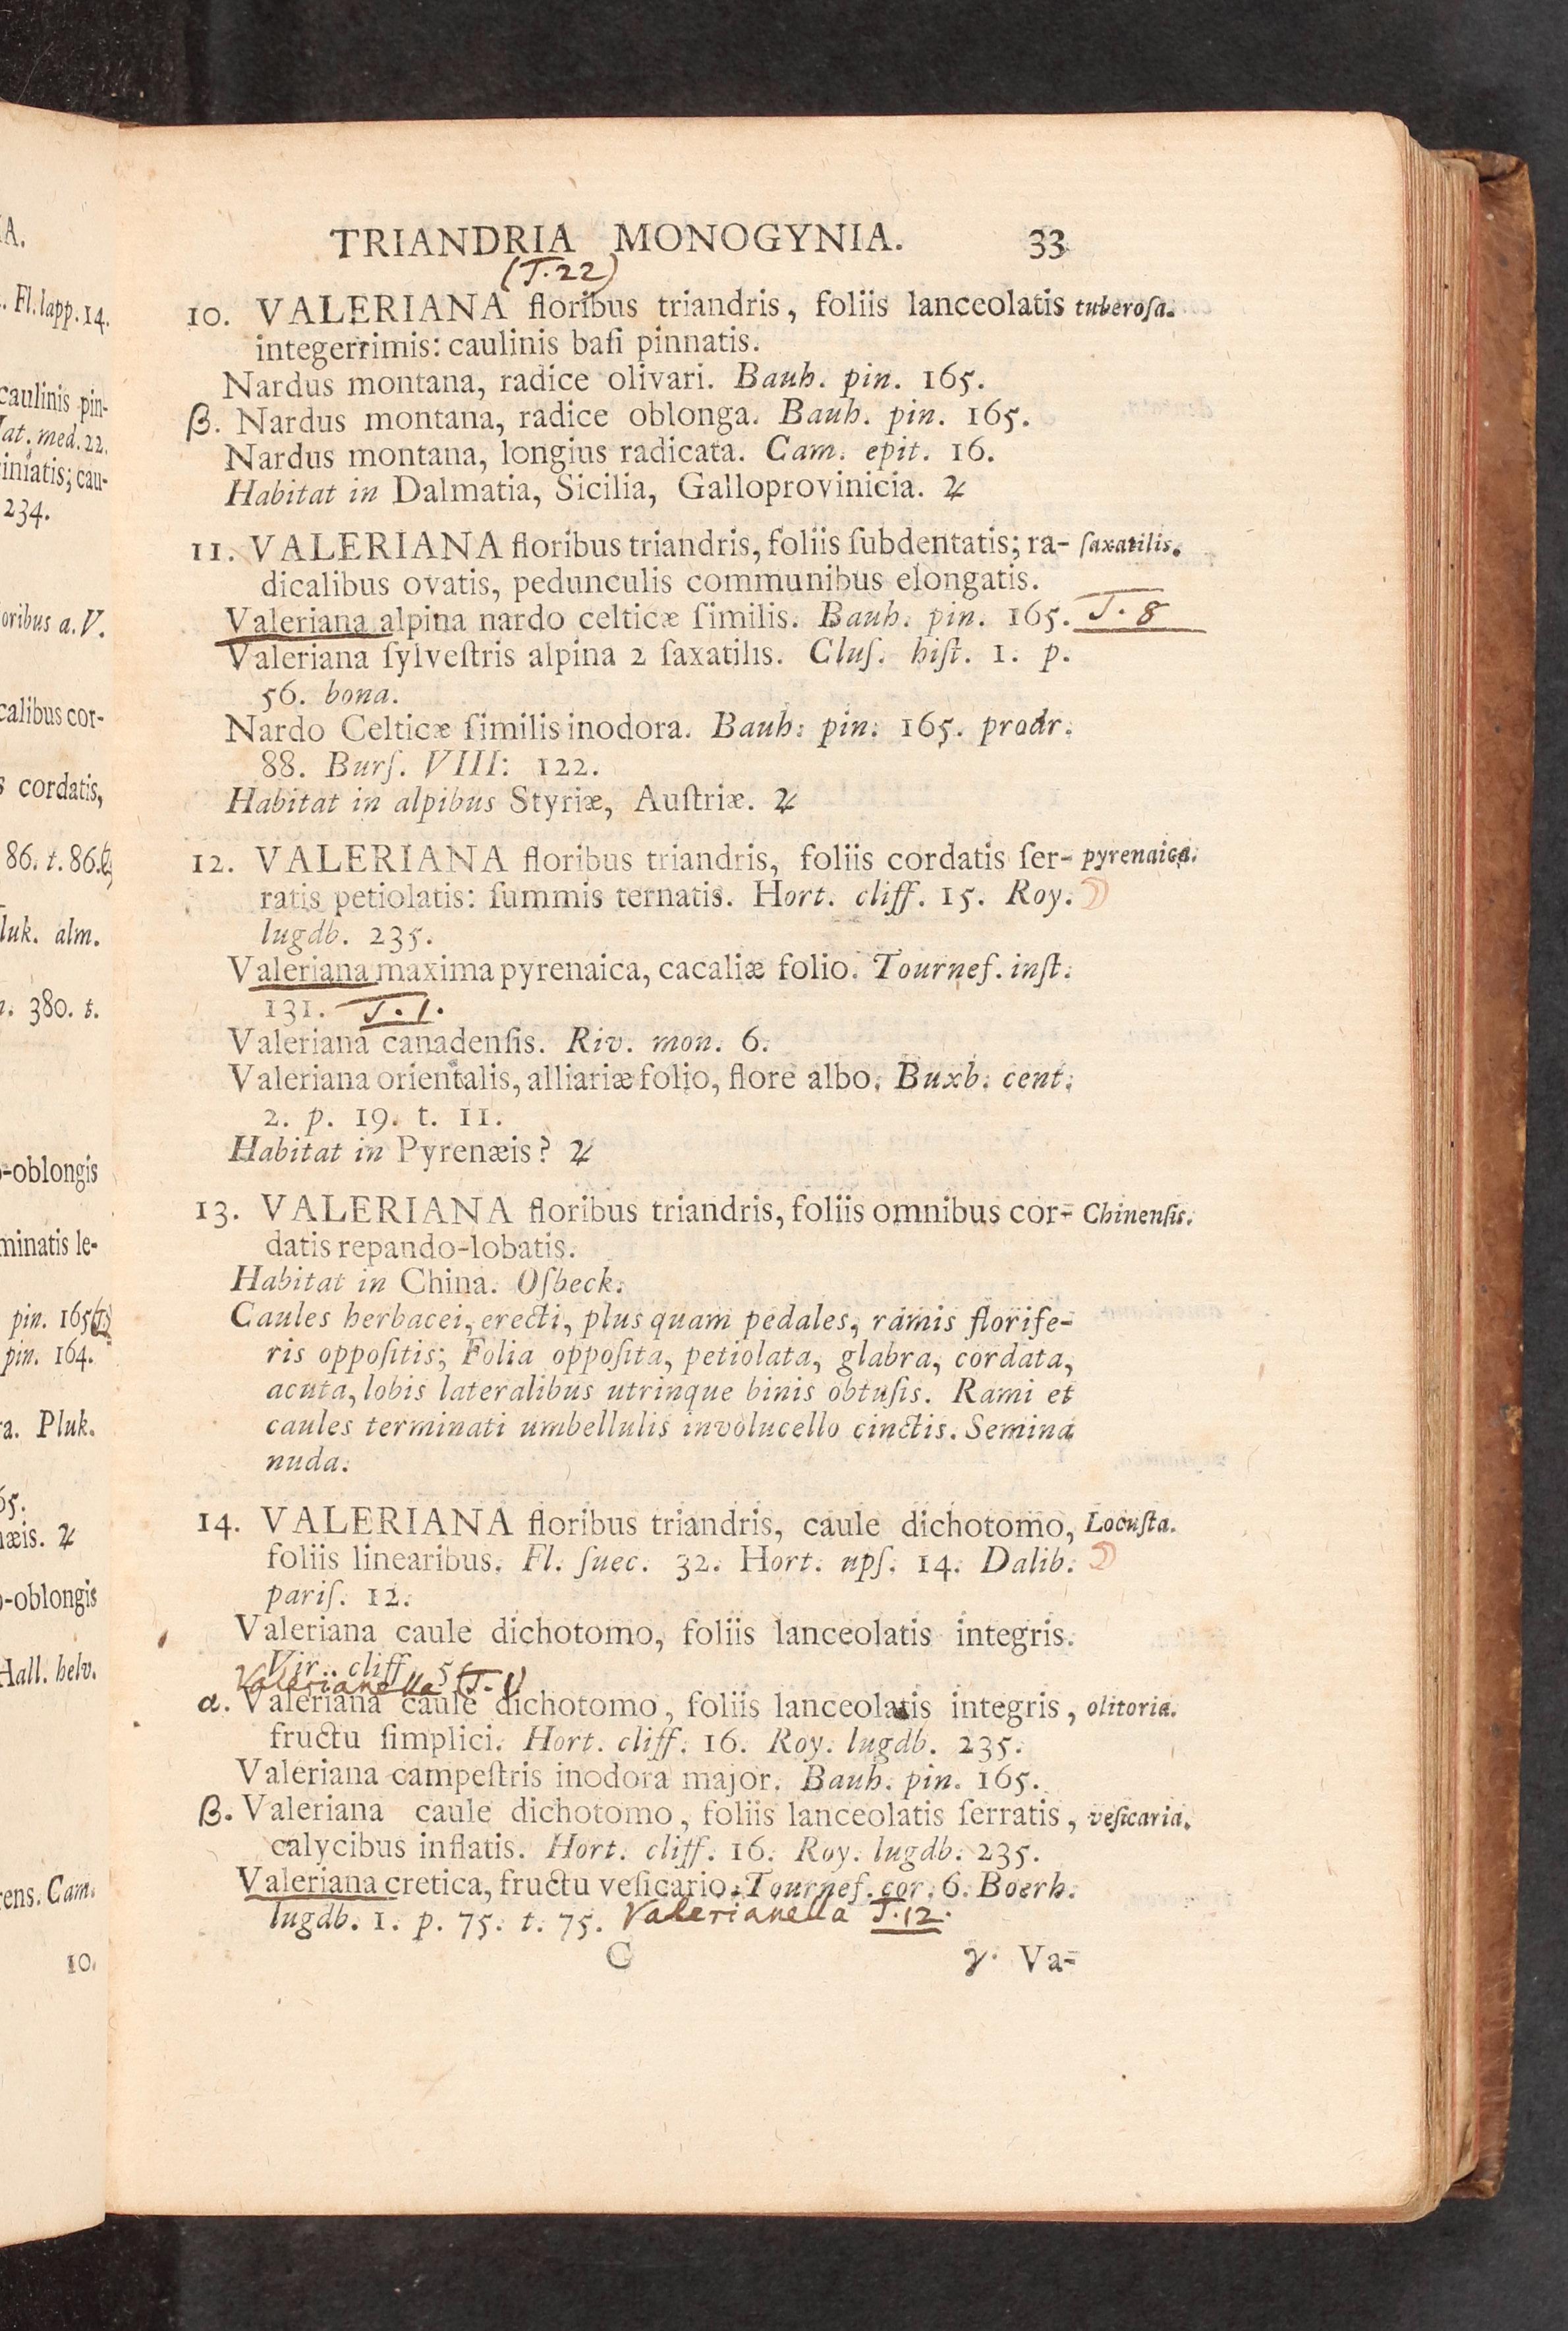 A.
. Fl. lapp. 14.
caulinis pin-
at. med. 22.
cau-
234.
oribus a. V.
calibus cor-
cordatis,
86. t. 86.
luk. alm.
380. t.
-oblongis
minatis le-
pin. 165
pin. 164.
a. Pluk.
65.
næis. ♃
-oblongis
Hall. helv.
rens. Cam.
10.
TRIANDRIA MONOGYNIA. 33
(T. 22)
10. VALERIANA floribus triandris, foliis lanceolatis tuberoſa.
integerrimis: caulinis baſi pinnatis.
Nardus montana, radice olivari. Bauh. pin. 165.
β. Nardus montana, radice oblonga. Bauh. pin. 165.
Nardus montana, longius radicata. Cam. epit. 16.
Habitat in Dalmatia, Sicilia, Galloprovinicia. ♃
11. VALERIANA floribus triandris, foliis ſubdentatis; ra- ſaxatilis.
dicalibus ovatis, pedunculis communibus elongatis.
Valeriana alpina nardo celticæ ſimilis. Bauh. pin. 165. T. 8
Valeriana ſylveſtris alpina 2 ſaxatilis. Cluſ. hiſt. 1. p.
56. bona.
Nardo Celticæ ſimilis inodora. Bauh. pin. 165. prodr.
88. Burſ. VIII: 122.
Habitat in alpibus Styriæ, Auſtriæ. ♃
12. VALERIANA floribus triandris, foliis cordatis ſer- pyrenaica.
ratis petiolatis: ſummis ternatis. Hort. cliff. 15. Roy.
lugdb. 235.
Valeriana maxima pyrenaica, cacaliæ folio. Tournef. inſt.
131. T. 1.
Valeriana canadenſis. Riv. mon. 6.
Valeriana orientalis, alliariæ folio, flore albo. Buxb. cent.
2. p. 19. t. 11.
Habitat in Pyrenæis? ♃
13. VALERIANA floribus triandris, foliis omnibus cor- Chinenſis.
datis repando-lobatis.
Habitat in China. Oſbeck.
Caules herbacei, erecti, plus quam pedales, ramis florife-
ris oppoſitis; Folia oppoſita, petiolata, glabra, cordata,
acuta, lobis lateralibus utrinque binis obtuſis. Rami et
caules terminati umbellulis involucello cinctis. Semina
nuda.
14. VALERIANA floribus triandris, caule dichotomo, Locuſta.
foliis linearibus. Fl. ſuec. 32. Hort. upſ. 14. Dalib.
pariſ. 12.
Valeriana caule dichotomo, foliis lanceolatis integris.
Vir. cliff. 5
Valerianella (T. 1)
α. Valeriana caule dichotomo, foliis lanceolatis integris, olitoria.
fructu ſimplici. Hort. cliff. 16. Roy. lugdb. 235.
Valeriana campeſtris inodora major. Bauh. pin. 165.
β. Valeriana caule dichotomo, foliis lanceolatis ſerratis, veſicaria.
calycibus inflatis. Hort. cliff. 16. Roy. lugdb. 235.
Valeriana cretica, fructu veſicario. Tournef. cor. 6. Boerh.
lugdb. 1. p. 75. t. 75. Valerianella T. 12.
C γ. Va-